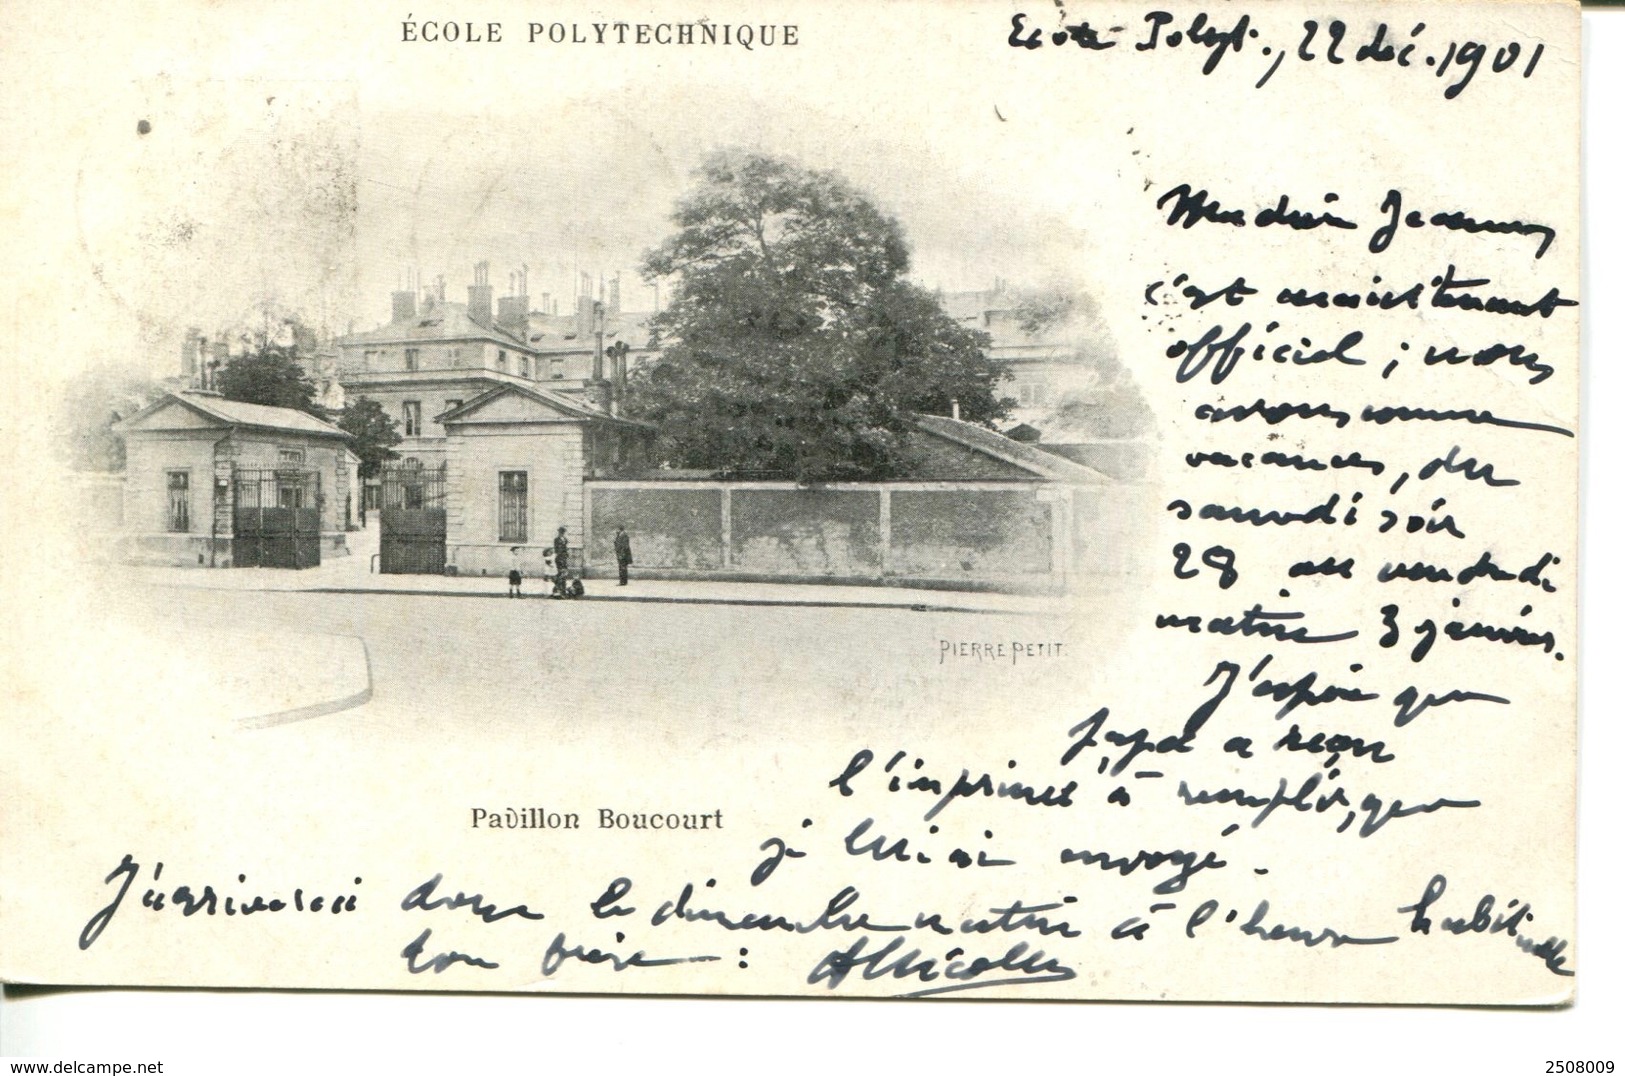 ÉCOLE POLYTECHNIQUE
Ecole Polyt., 22 déc. 1901
Jeanne
c'est maintenant
officiel ; nous
avons comme
vacances, du
samedi soir
28 au vendredi
matin 3 janvier.
J'espère que
papa a reçu
l'imprimé à remplir, que
je lui ai envoyé.
J'arriverai donc le dimanche matin à l'heure habituelle
Ton frère : ANicolle
PIERRE PETIT.
Pavillon Boucourt
delcampe.net
2508009